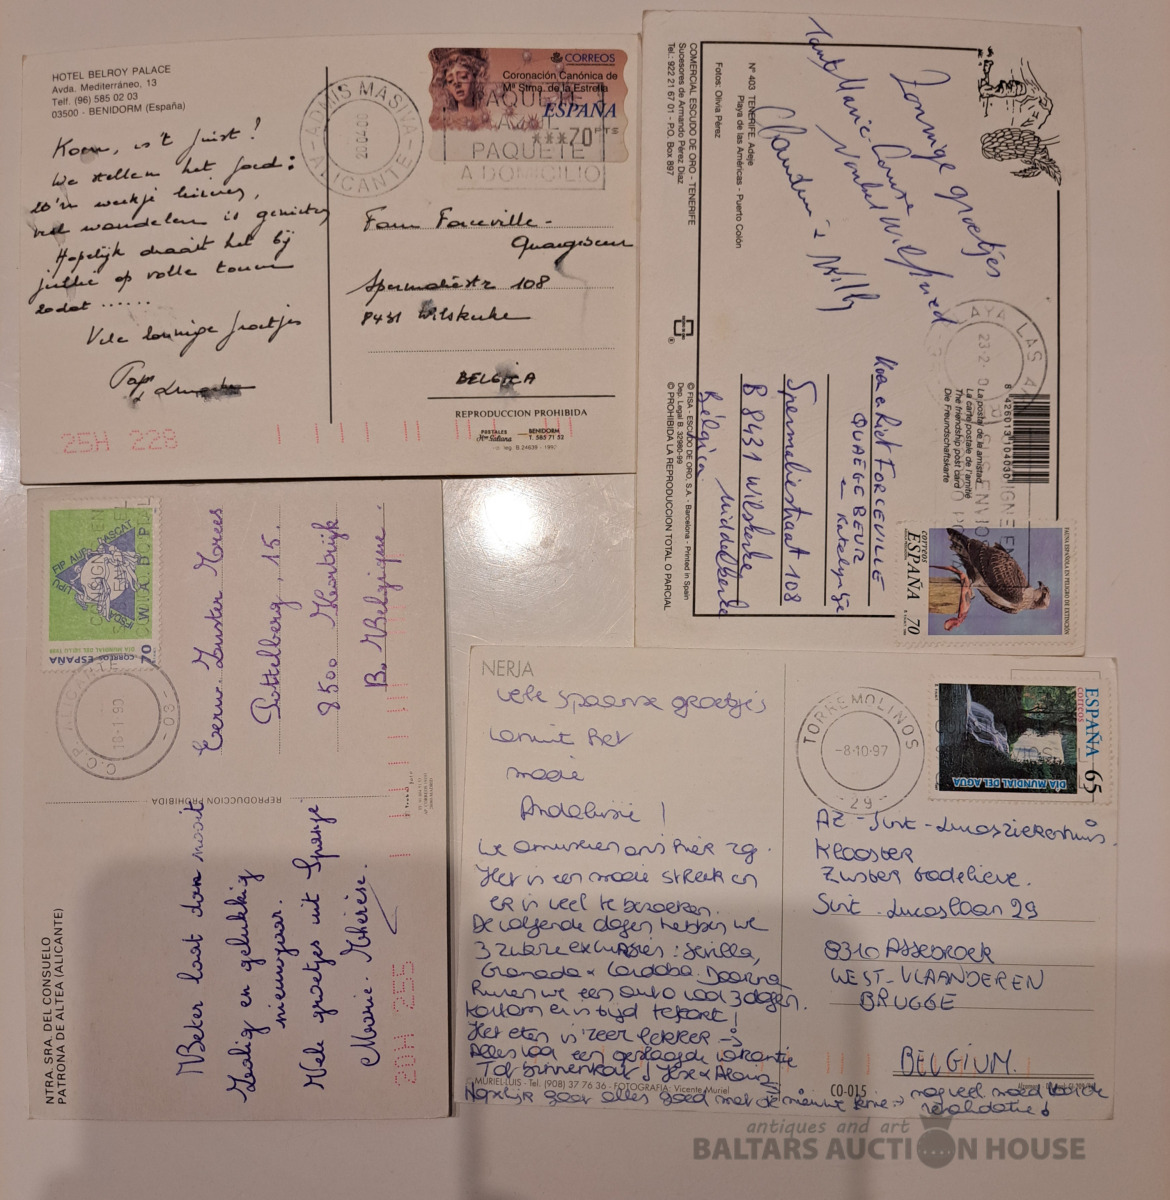 HOTEL BELROY PALACE
Avda. Mediterráneo, 13
Telf. (96) 585 02 03
03500 - BENIDORM (España)
Koen, is't juist!
We stellen het goed:
zo'n weekje
veel wandelen is genieten
Hopelijk draait het bij
jullie op volle toeren
zodat ......
Vele zonnige groetjes
CORREOS
Coronación Canónica de
Mª Stma. de la Estrella
ESPAÑA
***70 PTS
PAQUETE
AZUL
PAQUETE
A DOMICILIO
V-ADMIS MASIVA
ALICANTE
Fam Forceville-
Quaegebeur
Spermaliestr 108
8431 Wilskerke
BELGICA
REPRODUCCION PROHIBIDA
POSTALES
BENIDORM
T. 585 71 52
25H 228
COMERCIAL ESCUDO DE ORO - TENERIFE
Sucesores de Armando Pérez Díaz
Tel.: 922 21 67 01 - P.O. Box 897
Nº 403 TENERIFE. Adeje
Playa de las Américas - Puerto Colón
Fotos: Olivia Pérez
Zonnige groetjes
Tante Marie-Louise
Nonkel Wilfried
Claudine & Willy
© FISA - ESCUDO DE ORO, S.A. - Barcelona - Printed in Spain
Dep. Legal B. 32980-99
© PROHIBIDA LA REPRODUCCION TOTAL O PARCIAL
La postal de la amistad
La carte postale de l'amitié
The friendship post card
Die Freundschaftskarte
8 426013 104030
FORCEVILLE
QUAEGEBEUR
Spermaliestraat 108
B 8431 Wilskerke
Middelkerke
Bélgica
FAUNA ESPAÑOLA EN PELIGRO DE EXTINCION
correos
ESPAÑA
70
FIP AUPO DASCAT
DIA MUNDIAL DEL SELLO
CORREOS ESPAÑA
70
C.P. ALICANTE
-03-
Eerw. Zuster
Pottelberg, 15.
8500 Kortrijk
B. Belgique.
REPRODUCCION PROHIBIDA
NTRA. SRA. DEL CONSUELO
PATRONA DE ALTEA (ALICANTE)
Beter laat dan nooit
Zalig en gelukkig
nieuwjaar.
Vele groetjes uit Spanje
Marie-Thérèse.
20H 255
NERJA
vele spaanse groetjes
vanuit het
mooie
Andalusie!
We amuseren ons hier zg.
Het is een mooie streek en
er is veel te bezoeken.
De volgende dagen hebben we
3 zware excursies: Sevilla,
Granada & Cordoba. Daarna
huren we een auto voor 3 dagen.
Kortom er is tijd tekort!
Het eten is zeer lekker
Alles voor een geslaagde vakantie
Tot binnenkort!
MURIEL-LUIS - Tel. (908) 37 76 36 - FOTOGRAFIA: Vicente Muriel
CO-015
Hopelijk gaar alles goed met de nieuwe knie → nog veel moed voor de
revalidatie!
TORREMOLINOS
-8-10-97
-29-
ESPAÑA
correos
65
DÍA MUNDIAL DEL AGUA
AZ-Sint-Lucasziekenhuis
Klooster
Zuster Godelieve.
Sint-Lucaslaan 29
8310 Assebroek
WEST-VLAANDEREN
BRUGGE
BELGIUM.
antiques and art
BALTARS AUCTION HOUSE